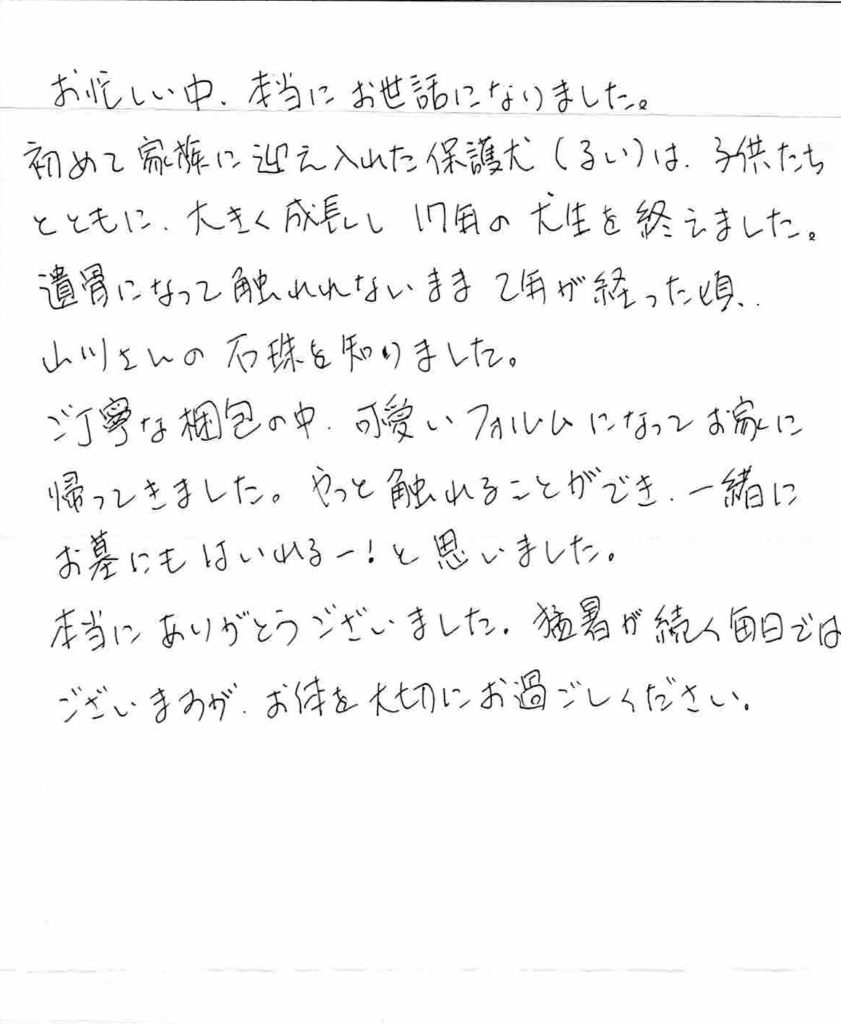 お忙しい中、本当にお世話になりました。
初めて家族に迎え入れた保護犬(るい)は、子供たち
とともに、大きく成長し 17年の犬生を終えました。
遺骨になって触れれないまま 2年が経った頃、
山川さんの石珠を知りました。
ご丁寧な梱包の中、可愛いフォルムになってお家に
帰ってきました。やっと触れることができ、一緒に
お墓にもはいれるー!と思いました。
本当にありがとうございました。猛暑が続く毎日では
ございますが、お体を大切にお過ごしください。